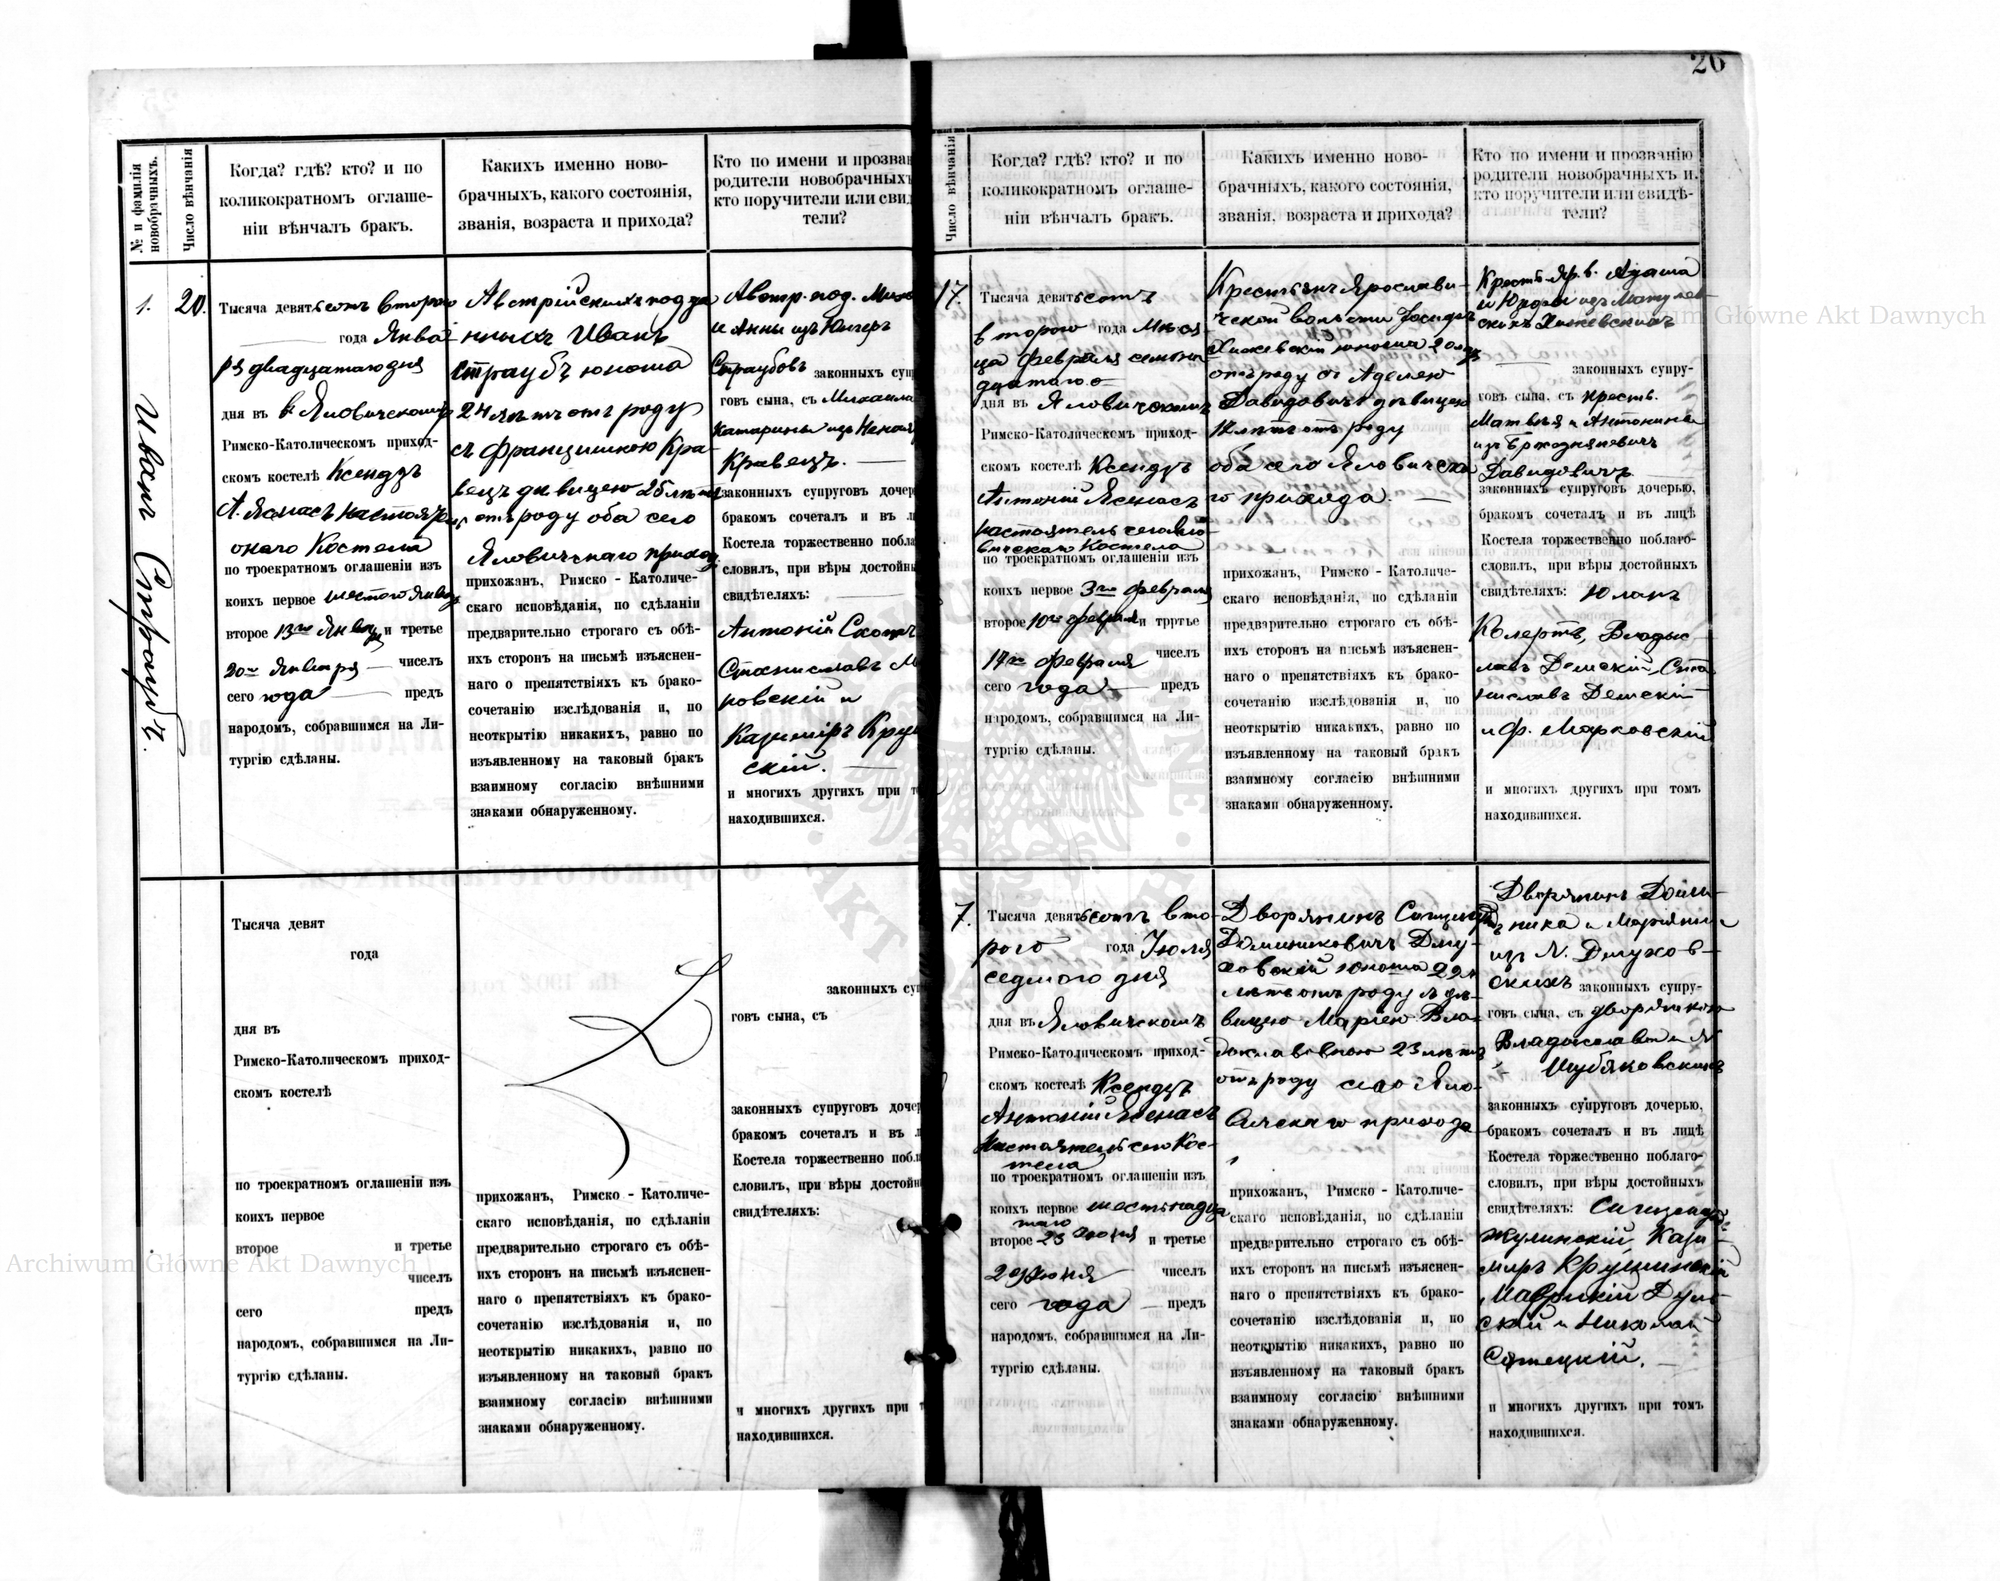 26
№ и фамилія новобрачныхъ.
Число вѣнчанія
Когда? гдѣ? кто? и по
коликократномъ оглаше-
ніи вѣнчалъ бракъ.
Какихъ именно ново-
брачныхъ, какого состоянія,
званія, возраста и прихода?
Кто по имени и прозван
родители новобрачныхъ
кто поручители или свид
тели?
1.
Иванъ Страубъ.
20.
Тысяча девятьсотъ второго
года Янва
ря двадцатаго дня
дня въ Яловичскомъ
Римско-Католическомъ приход-
скомъ костелѣ Ксендзъ
А. Ясенасъ настоятель
онаго Костела
по троекратномъ оглашеніи изъ
коихъ первое шестого Января
второе 13го Января и третье
20го Января чиселъ
сего года предъ
народомъ, собравшимся на Ли-
тургію сдѣланы.
Австрійскихъ подда
нныхъ Иванъ
Страубъ юноша
24 лѣтъ отъ роду
съ Францишкою Кра-
вецъ дѣвицею 25 лѣтъ
отъ роду оба сего
Яловичскаго прихода
прихожанъ, Римско - Католиче-
скаго исповѣданія, по сдѣланіи
предварительно строгаго съ обѣ-
ихъ сторонъ на письмѣ изъяснен-
наго о препятствіяхъ къ брако-
сочетанію изслѣдованія и, по
неоткрытію никакихъ, равно по
изъявленному на таковый бракъ
взаимному согласію внѣшними
знаками обнаруженному.
Австр. под.
и Анны изъ
Страубовъ законныхъ суп
говъ сына, съ Михаила
Катарины изъ
Кравецъ.
законныхъ супруговъ дочер
бракомъ сочеталъ и въ л
Костела торжественно побла
словилъ, при вѣры достойны
свидѣтеляхъ:
Антоній
Станиславъ
ровскій и
Казиміръ Круш
скій.
и многихъ другихъ при т
находившихся.
Тысяча девят
года
дня въ
Римско-Католическомъ приход-
скомъ костелѣ
по троекратномъ оглашеніи изъ
коихъ первое
второе и третье
чиселъ
сего предъ
народомъ, собравшимся на Ли-
тургію сдѣланы.
прихожанъ, Римско - Католиче-
скаго исповѣданія, по сдѣланіи
предварительно строгаго съ обѣ-
ихъ сторонъ на письмѣ изъяснен-
наго о препятствіяхъ къ брако-
сочетанію изслѣдованія и, по
неоткрытію никакихъ, равно по
изъявленному на таковый бракъ
взаимному согласію внѣшними
знаками обнаруженному.
законныхъ суп
говъ сына, съ
законныхъ супруговъ дочер
бракомъ сочеталъ и въ л
Костела торжественно побла
словилъ, при вѣры достойн
свидѣтеляхъ:
и многихъ другихъ при т
находившихся.
Число вѣнчанія
Когда? гдѣ? кто? и по
коликократномъ оглаше-
ніи вѣнчалъ бракъ.
Какихъ именно ново-
брачныхъ, какого состоянія,
званія, возраста и прихода?
Кто по имени и прозванію
родители новобрачныхъ и
кто поручители или свидѣ-
тели?
17.
Тысяча девятьсотъ
второго года Мѣся
ца Февраля семна
дцатаго
дня въ Яловичскомъ
Римско-Католическомъ приход-
скомъ костелѣ Ксендзъ
Антоній Ясенасъ
настоятель сего Яло-
вичскаго Костела
по троекратномъ оглашеніи изъ
коихъ первое 3го Февраля
второе 10го Февраля и третье
17го Февраля чиселъ
сего года предъ
народомъ, собравшимся на Ли-
тургію сдѣланы.
Крестьянъ Ярослави-
чской волости
юноша 20 лѣтъ
отъ роду съ Аделею
Давидовичъ дѣвицею
лѣтъ отъ роду
оба сего Яловичска
го прихода.
прихожанъ, Римско - Католиче-
скаго исповѣданія, по сдѣланіи
предварительно строгаго съ обѣ-
ихъ сторонъ на письмѣ изъяснен-
наго о препятствіяхъ къ брако-
сочетанію изслѣдованія и, по
неоткрытію никакихъ, равно по
изъявленному на таковый бракъ
взаимному согласію внѣшними
знаками обнаруженному.
Крестъ. Яр. в. Адама
и изъ
законныхъ супру-
говъ сына, съ крестъ.
Матвѣя и Антонины
изъ
Давидовичъ
законныхъ супруговъ дочерью,
бракомъ сочеталъ и въ лицѣ
Костела торжественно поблаго-
словилъ, при вѣры достойныхъ
свидѣтеляхъ: Юліанъ
Владис
лавъ Демскій, Ста
ниславъ Демскій
и Ф. Марковскій
и многихъ другихъ при томъ
находившихся.
7.
Тысяча девятьсотъ вто-
рого года Іюля
седмого дня
дня въ Яловичскомъ
Римско-Католическомъ приход-
скомъ костелѣ Ксендзъ
Антоній Ясенасъ
Настоятель сего Кос-
тела
по троекратномъ оглашеніи изъ
коихъ первое шестьнадца
таго
второе 23 Іюня и третье
29 Іюня чиселъ
сего года предъ
народомъ, собравшимся на Ли-
тургію сдѣланы.
Дворянинъ Сигизмундъ
Доминиковичъ Длу-
ховскій юноша 22
лѣтъ отъ роду съ дѣ-
вицею Маріею Вла-
диславовною 23 лѣтъ
отъ роду сего Яло-
вичскаго прихода
прихожанъ, Римско - Католиче-
скаго исповѣданія, по сдѣланіи
предварительно строгаго съ обѣ-
ихъ сторонъ на письмѣ изъяснен-
наго о препятствіяхъ къ брако-
сочетанію изслѣдованія и, по
неоткрытію никакихъ, равно по
изъявленному на таковый бракъ
взаимному согласію внѣшними
знаками обнаруженному.
Дворянинъ Доми-
ника и Маріанны
изъ N. Длухов-
скихъ законныхъ супру-
говъ сына, съ дворянкою
Владислава и N
Шубяковскихъ
законныхъ супруговъ дочерью,
бракомъ сочеталъ и въ лицѣ
Костела торжественно поблаго-
словилъ, при вѣры достойныхъ
свидѣтеляхъ: Сигизмундъ
Жулинскій, Кази-
миръ Крушинскій
Маврикій
скій и Николай
Сятецкій.
и многихъ другихъ при томъ
находившихся.
Archiwum Główne Akt Dawnych
Archiwum Główne Akt Dawnych